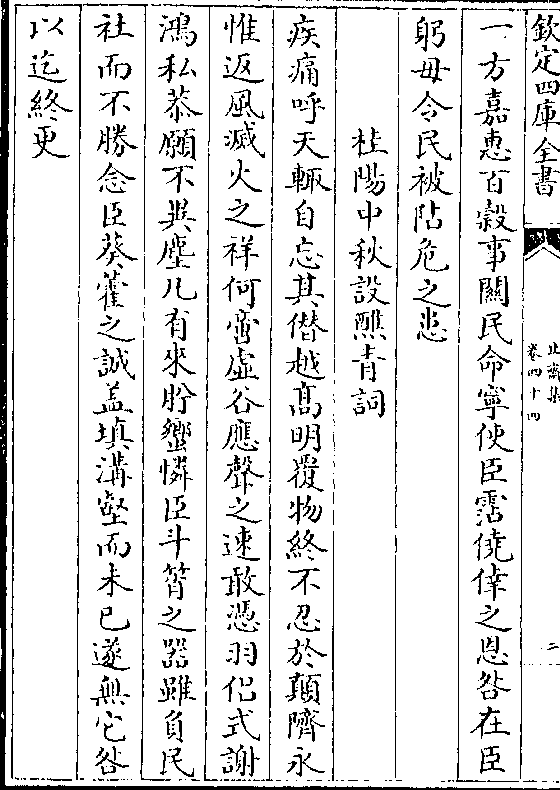 欽定四庫全書
止齋集
卷四十四
二
一方嘉惠百穀事關民命寧使臣霑僥倖之恩咎在臣
躬毋令民被阽危之患
桂陽中秋設醮青詞
疾痛呼天輒自忘其僭越高明覆物終不忍於顛隮永
惟返風滅火之祥何啻虛谷應聲之速敢憑羽侣式謝
鴻私恭願不異塵凡有來肸蠁憐臣斗筲之器雖負民
社而不勝念臣葵藿之誠盖填溝壑而未已遂無它咎
以迄終更